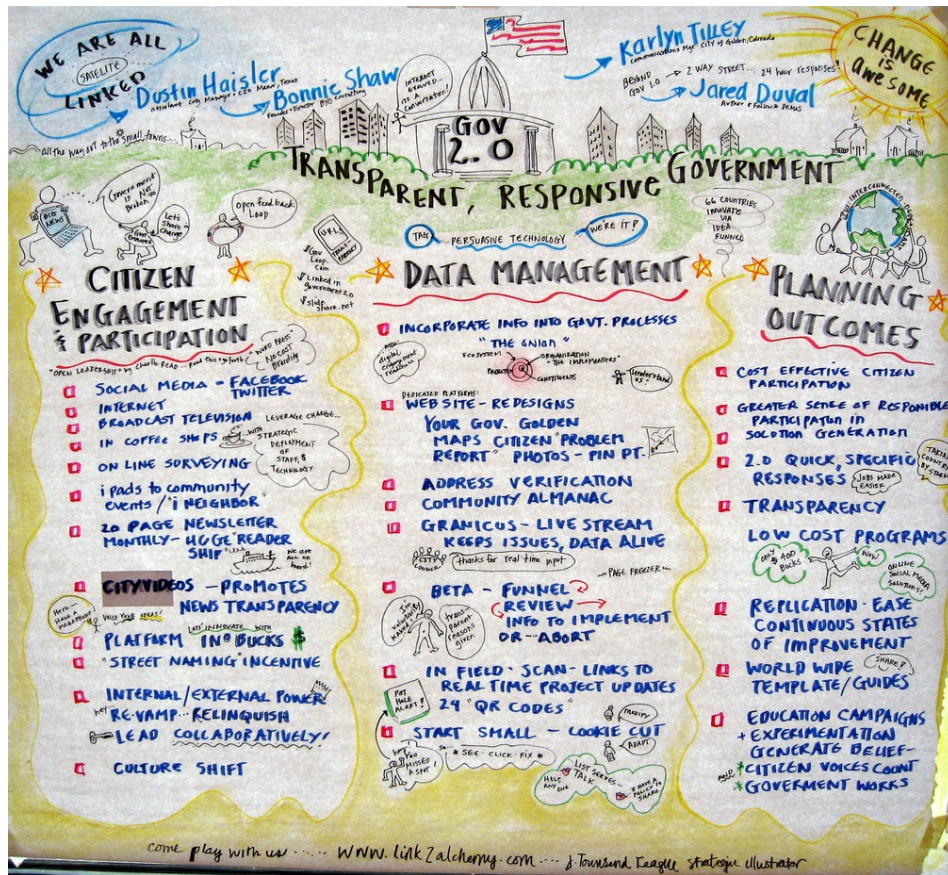 WE ARE ALL
SATELLITE
LINKED
Dustin Haisler
Bonnie Shaw
INTERNET
IT'S A
CONVERSATION!
Karlyn Tilley
Communications Mgr. City of Golden, Colorado
BEYOND
GOV 1.0
2 WAY STREET... 24 hour responses!
Jared Duval
CHANGE
is
AWESOME
all the way out to the small towns...
GOV
2.0
TRANSPARENT, RESPONSIVE GOVERNMENT
BIG
NEWS
Government
is Not
Broken
Let's
share -
Change
Open feedback
Loop
URL
TRANS-
PARENCY
Gov
Loop.
Com
Linked in
government 2.0
slide
share.net
TAG
PERSUASIVE TECHNOLOGY
WE'RE IT!
66 COUNTRIES
INNOVATE
VIA
IDEA
FUNNEL
CITIZEN
ENGAGEMENT
& PARTICIPATION
"OPEN LEADERSHIP" by Charlie READ - Read this & go forth
"WORD PRESS"
NO COST
SOCIAL MEDIA - FACEBOOK
TWITTER
INTERNET
BROADCAST TELEVISION
IN COFFEE SHOPS
LEVERAGE CHANGE...
WITH
STRATEGIC
DEPLOYMENT
OF
STAFF, &
TECHNOLOGY
ON LINE SURVEYING
i pads to community
events / "i NEIGHBOR"
20 PAGE NEWSLETTER
MONTHLY - HUGE READER
SHIP
we are
all on
board!
CITYVIDEOS - PROMOTES
NEWS TRANSPARENCY
Here -
HAVE A
MEGAPHONE
VOICE YOUR IDEAS!
LETS INNOVATE WITH
PLATFORM INO BUCKS $
"STREET NAMING" INCENTIVE
INTERNAL/EXTERNAL POWER
RE-VAMP... RELINQUISH
LEAD COLLABORATIVELY!
CULTURE SHIFT
DATA MANAGEMENT
INCORPORATE INFO INTO GOVT. PROCESSES
"THE ONION"
digital
ECOSYSTEM
ORGANIZATION "THE IMPLEMENTERS"
PROJECT
CONSTITUENTS
DEDICATED PLATFORMS:
WEB SITE - REDESIGNS
YOUR GOV. GOLDEN
MAPS CITIZEN "PROBLEM
REPORT" PHOTOS - PIN PT.
ADDRESS VERIFICATION
COMMUNITY ALMANAC
GRANICUS - LIVE STREAM
KEEPS ISSUES, DATA ALIVE
CITY
COUNCIL
thanks for real time input
PAGE FREEZER
BETA - FUNNEL
REVIEW
INFO TO IMPLEMENT
OR - ABORT
trans-
parent
reasons
given
IN FIELD - SCAN - LINKS TO
REAL TIME PROJECT UPDATES
24 "QR CODES"
POT
HOLE
ALERT!
START SMALL - COOKIE CUT
MODIFY
ADAPT
hey
You
MISSED
A SPOT!
SO...
* SEE - CLICK - FIX *
HELP
ANY ONE
LIST SERVES -
TALK
I HAVE A
POLICY TO
SHARE
PLANNING
OUTCOMES
COST EFFECTIVE CITIZEN
PARTICIPATION
GREATER SENSE OF RESPONSIBLE
PARTICIPATION IN
SOLUTION GENERATION
2.0 QUICK, SPECIFIC
RESPONSES
JOBS MADE
EASIER
TRANSPARENCY
LOW COST PROGRAMS
ONLY
$400
BUCKS
WOW!
ONLINE
SOCIAL MEDIA
SOLUTIONS!
REPLICATION - EASE
CONTINUOUS STATES
OF IMPROVEMENT
WORLD WIDE
TEMPLATE/GUIDES
SHARE!
EDUCATION CAMPAIGNS
+ EXPERIMENTATION
GENERATE BELIEF-
* CITIZEN VOICES COUNT
* GOVERMENT WORKS
come play with us ...... www.link2alchemy.com .... J. Townsend Teague strategic illustrator